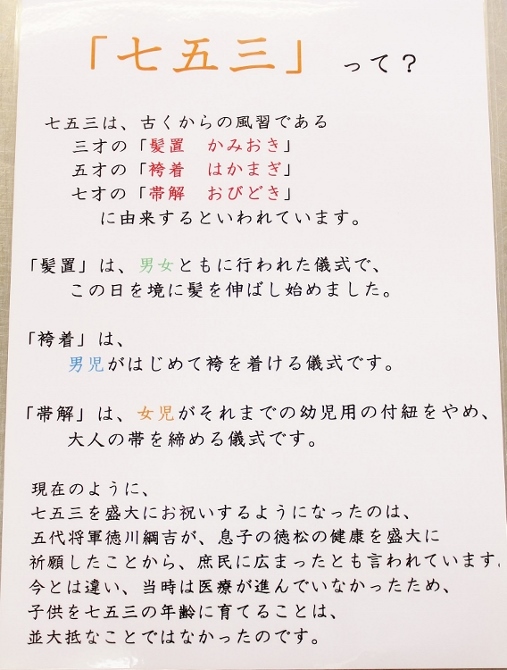 「七五三」って？
七五三は、古くからの風習である
三才の「髪置　かみおき」
五才の「袴着　はかまぎ」
七才の「帯解　おびどき」
に由来するといわれています。
「髪置」は、男女ともに行われた儀式で、
この日を境に髪を伸ばし始めました。
「袴着」は、
男児がはじめて袴を着ける儀式です。
「帯解」は、女児がそれまでの幼児用の付紐をやめ、
大人の帯を締める儀式です。
現在のように、
七五三を盛大にお祝いするようになったのは、
五代将軍徳川綱吉が、息子の徳松の健康を盛大に
祈願したことから、庶民に広まったとも言われています。
今とは違い、当時は医療が進んでいなかったため、
子供を七五三の年齢に育てることは、
並大抵なことではなかったのです。